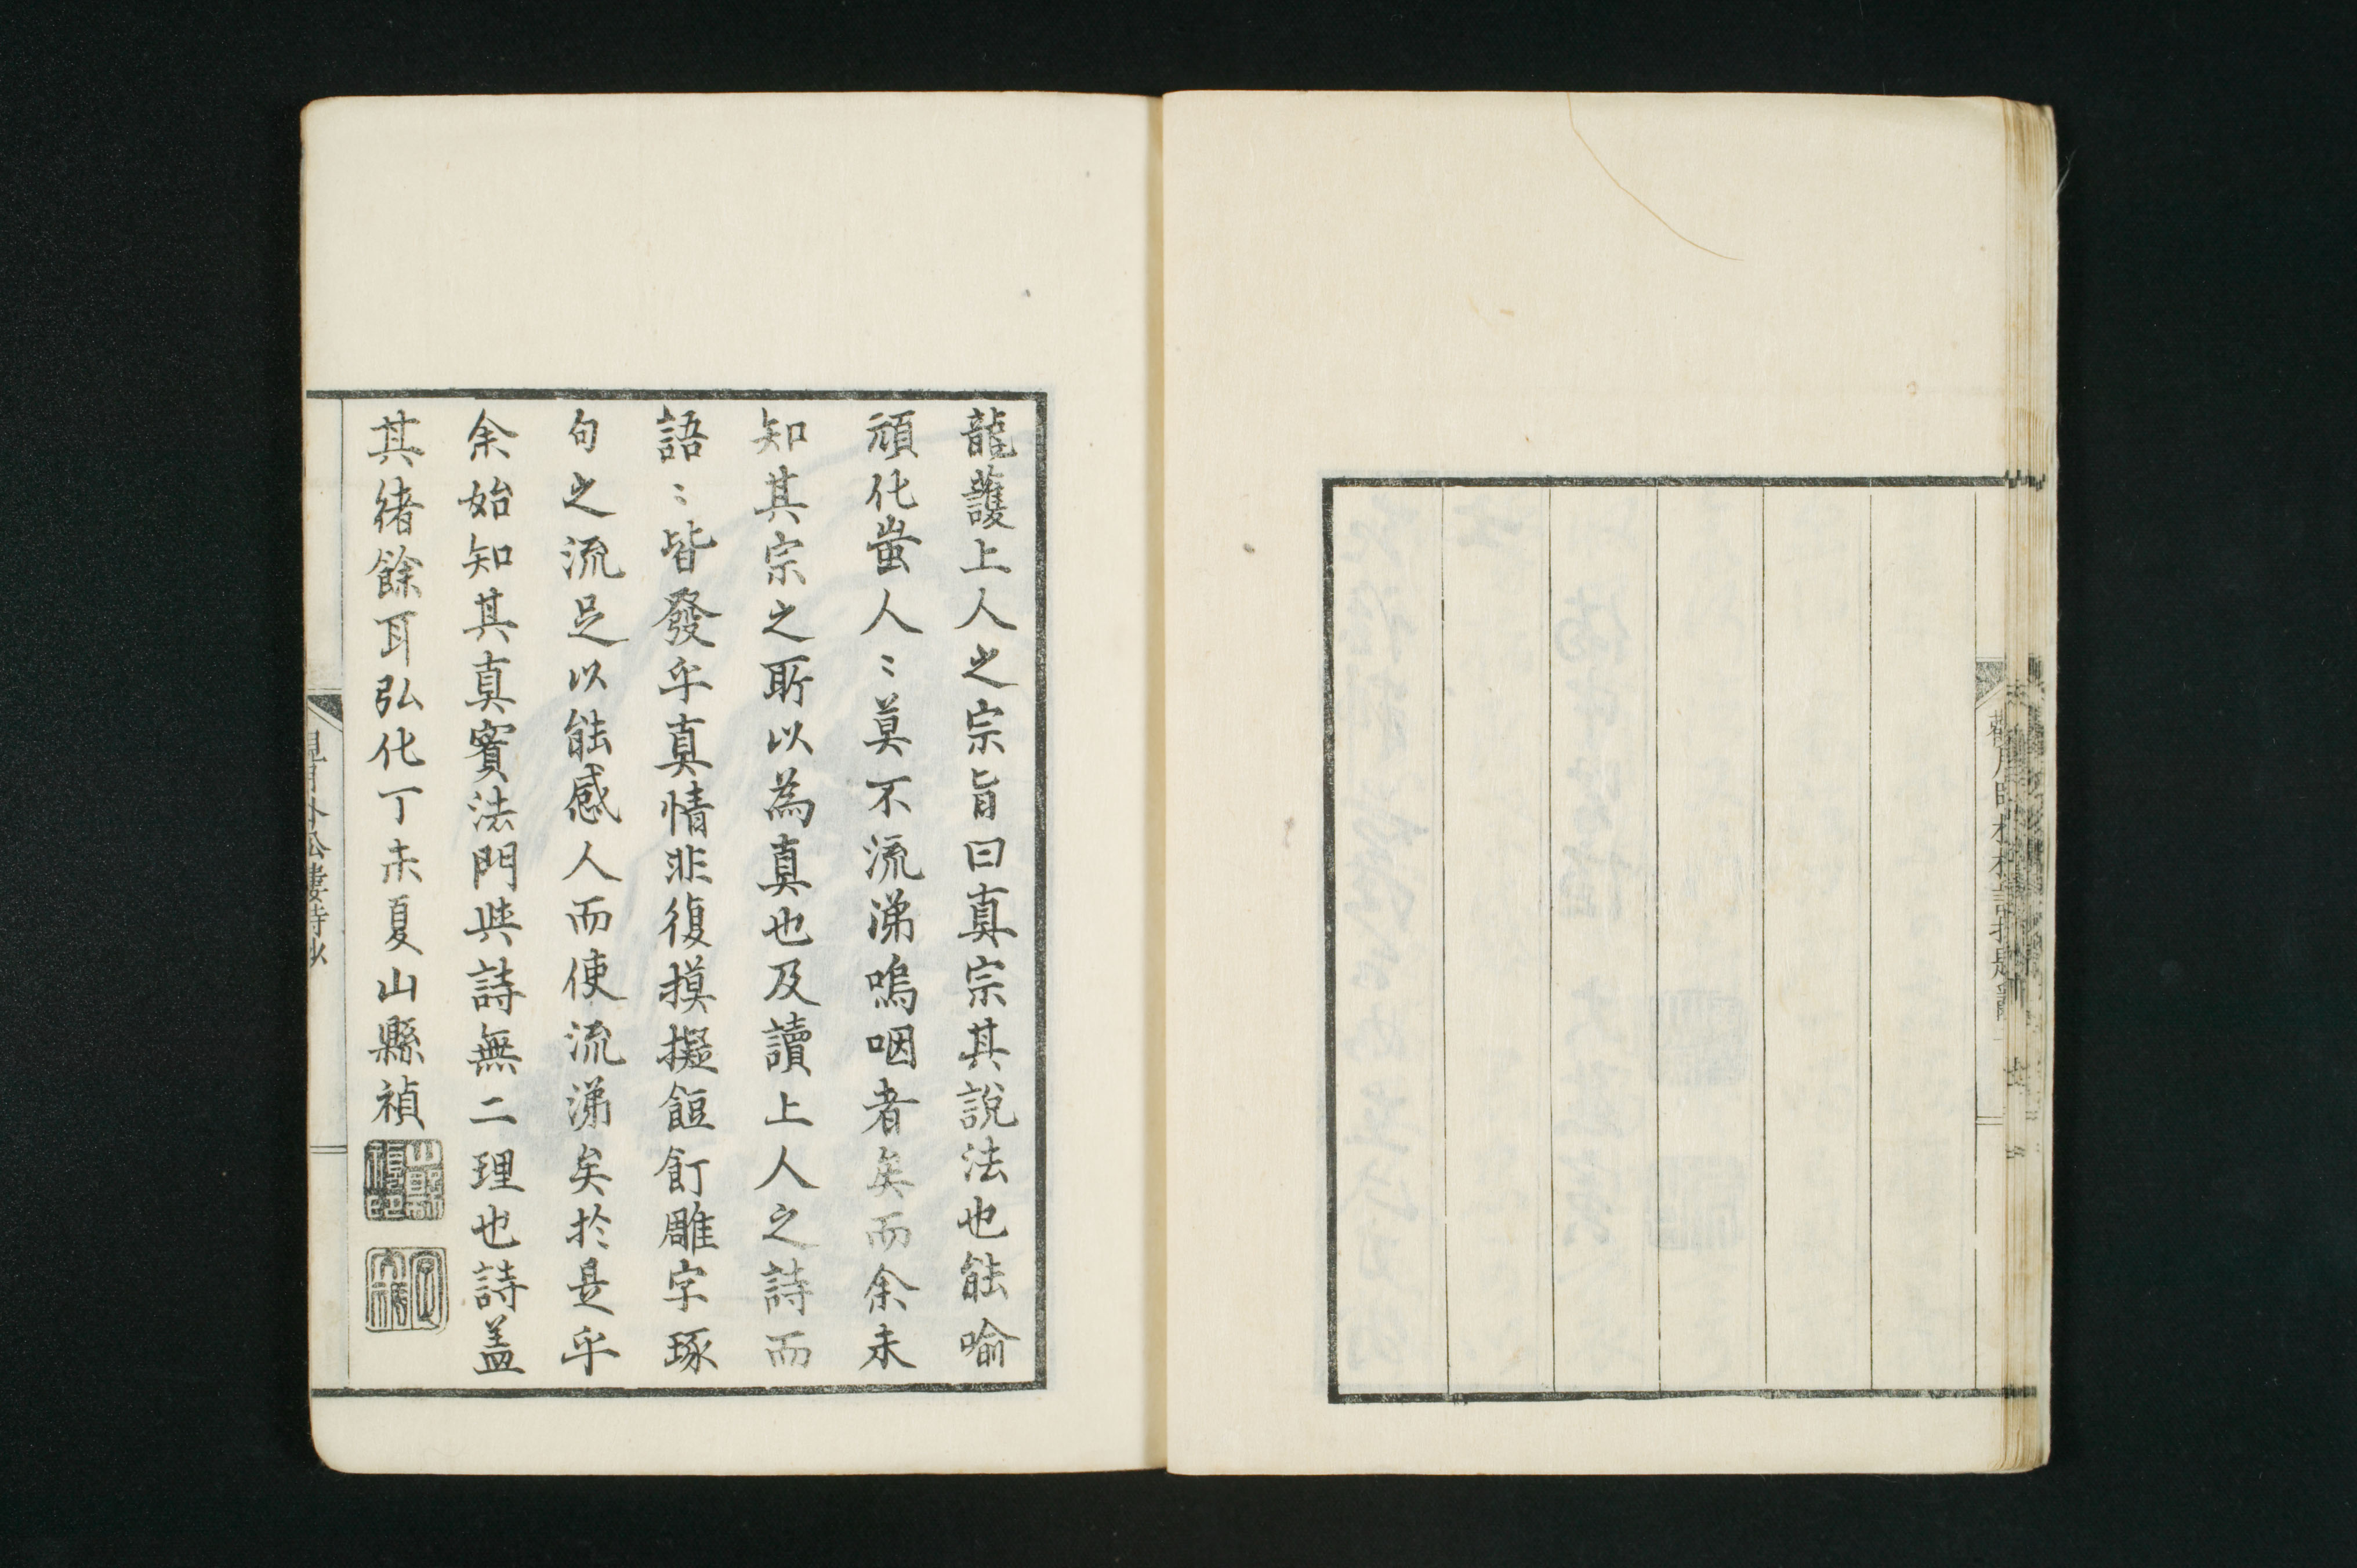 龍護上人之宗旨曰真宗其說法也能喻
頑化蚩人〻莫不流涕嗚咽者矣而余未
知其宗之所以為真也及讀上人之詩而
語〻皆發乎真情非復摸擬飣餖雕字琢
句之流足以能感人而使流涕矣於是乎
余始知其真實法門與詩無二理也詩盖
其緒餘耳弘化丁未夏山縣禎